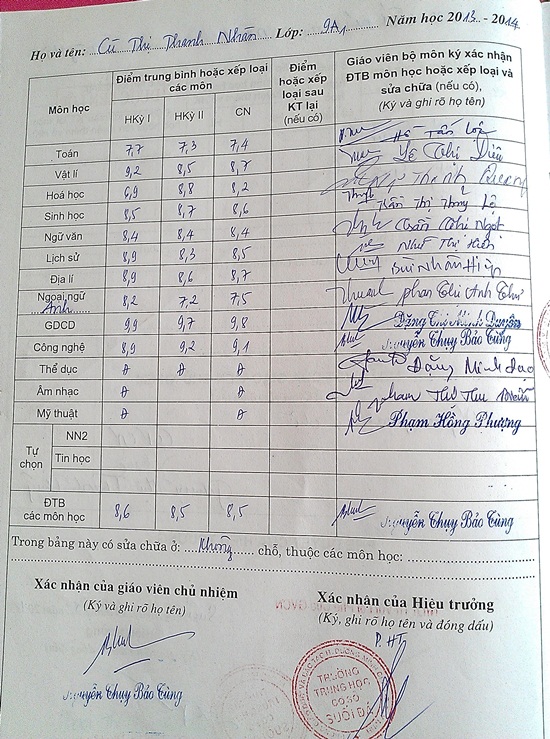 Họ và tên: Cù Thị Thanh Nhàn Lớp: 9A1 Năm học 2013 - 2014
Môn học Điểm trung bình hoặc xếp loại các môn Điểm hoặc xếp loại sau KT lại (nếu có) Giáo viên bộ môn ký xác nhận ĐTB môn học hoặc xếp loại và sửa chữa (nếu có), (Ký và ghi rõ họ tên)
HKỳ I HKỳ II CN
Toán 7,7 7,3 7,4 Hồ Tấn Lộc
Vật lí 9,2 8,5 8,7 Lê Thị Diệu
Hoá học 6,9 8,8 8,2
Sinh học 8,5 8,7 8,6 Trần Thị Thùy
Ngữ văn 8,4 8,4 8,4 Trần Thị Ngót
Lịch sử 8,9 8,3 8,5 Như Thị Hiền
Địa lí 8,9 8,6 8,7 Bùi Nhân Hiệp
Ngoại ngữ Anh 8,2 7,2 7,5 Phan Thị Anh Thư
GDCD 9,9 9,7 9,8 Đặng Thị Minh Duyên
Công nghệ 8,9 9,2 9,1 Nguyễn Thụy Bảo Cúng
Thể dục Đ Đ Đ Đặng Minh Đạo
Âm nhạc Đ Đ Phạm Thị Thu
Mỹ thuật Đ Đ Phạm Hồng Phượng
Tự chọn NN2
Tin học
ĐTB các môn học 8,6 8,5 8,5 Nguyễn Thụy Bảo Cúng
Trong bảng này có sửa chữa ở: Không chỗ, thuộc các môn học:
Xác nhận của giáo viên chủ nhiệm Xác nhận của Hiệu trưởng
(Ký và ghi rõ họ tên) (Ký, ghi rõ họ tên và đóng dấu)
P. HT
TRƯỜNG
TRUNG HỌC
CƠ SỞ
SUỐI ĐÁ
Nguyễn Thụy Bảo Cúng